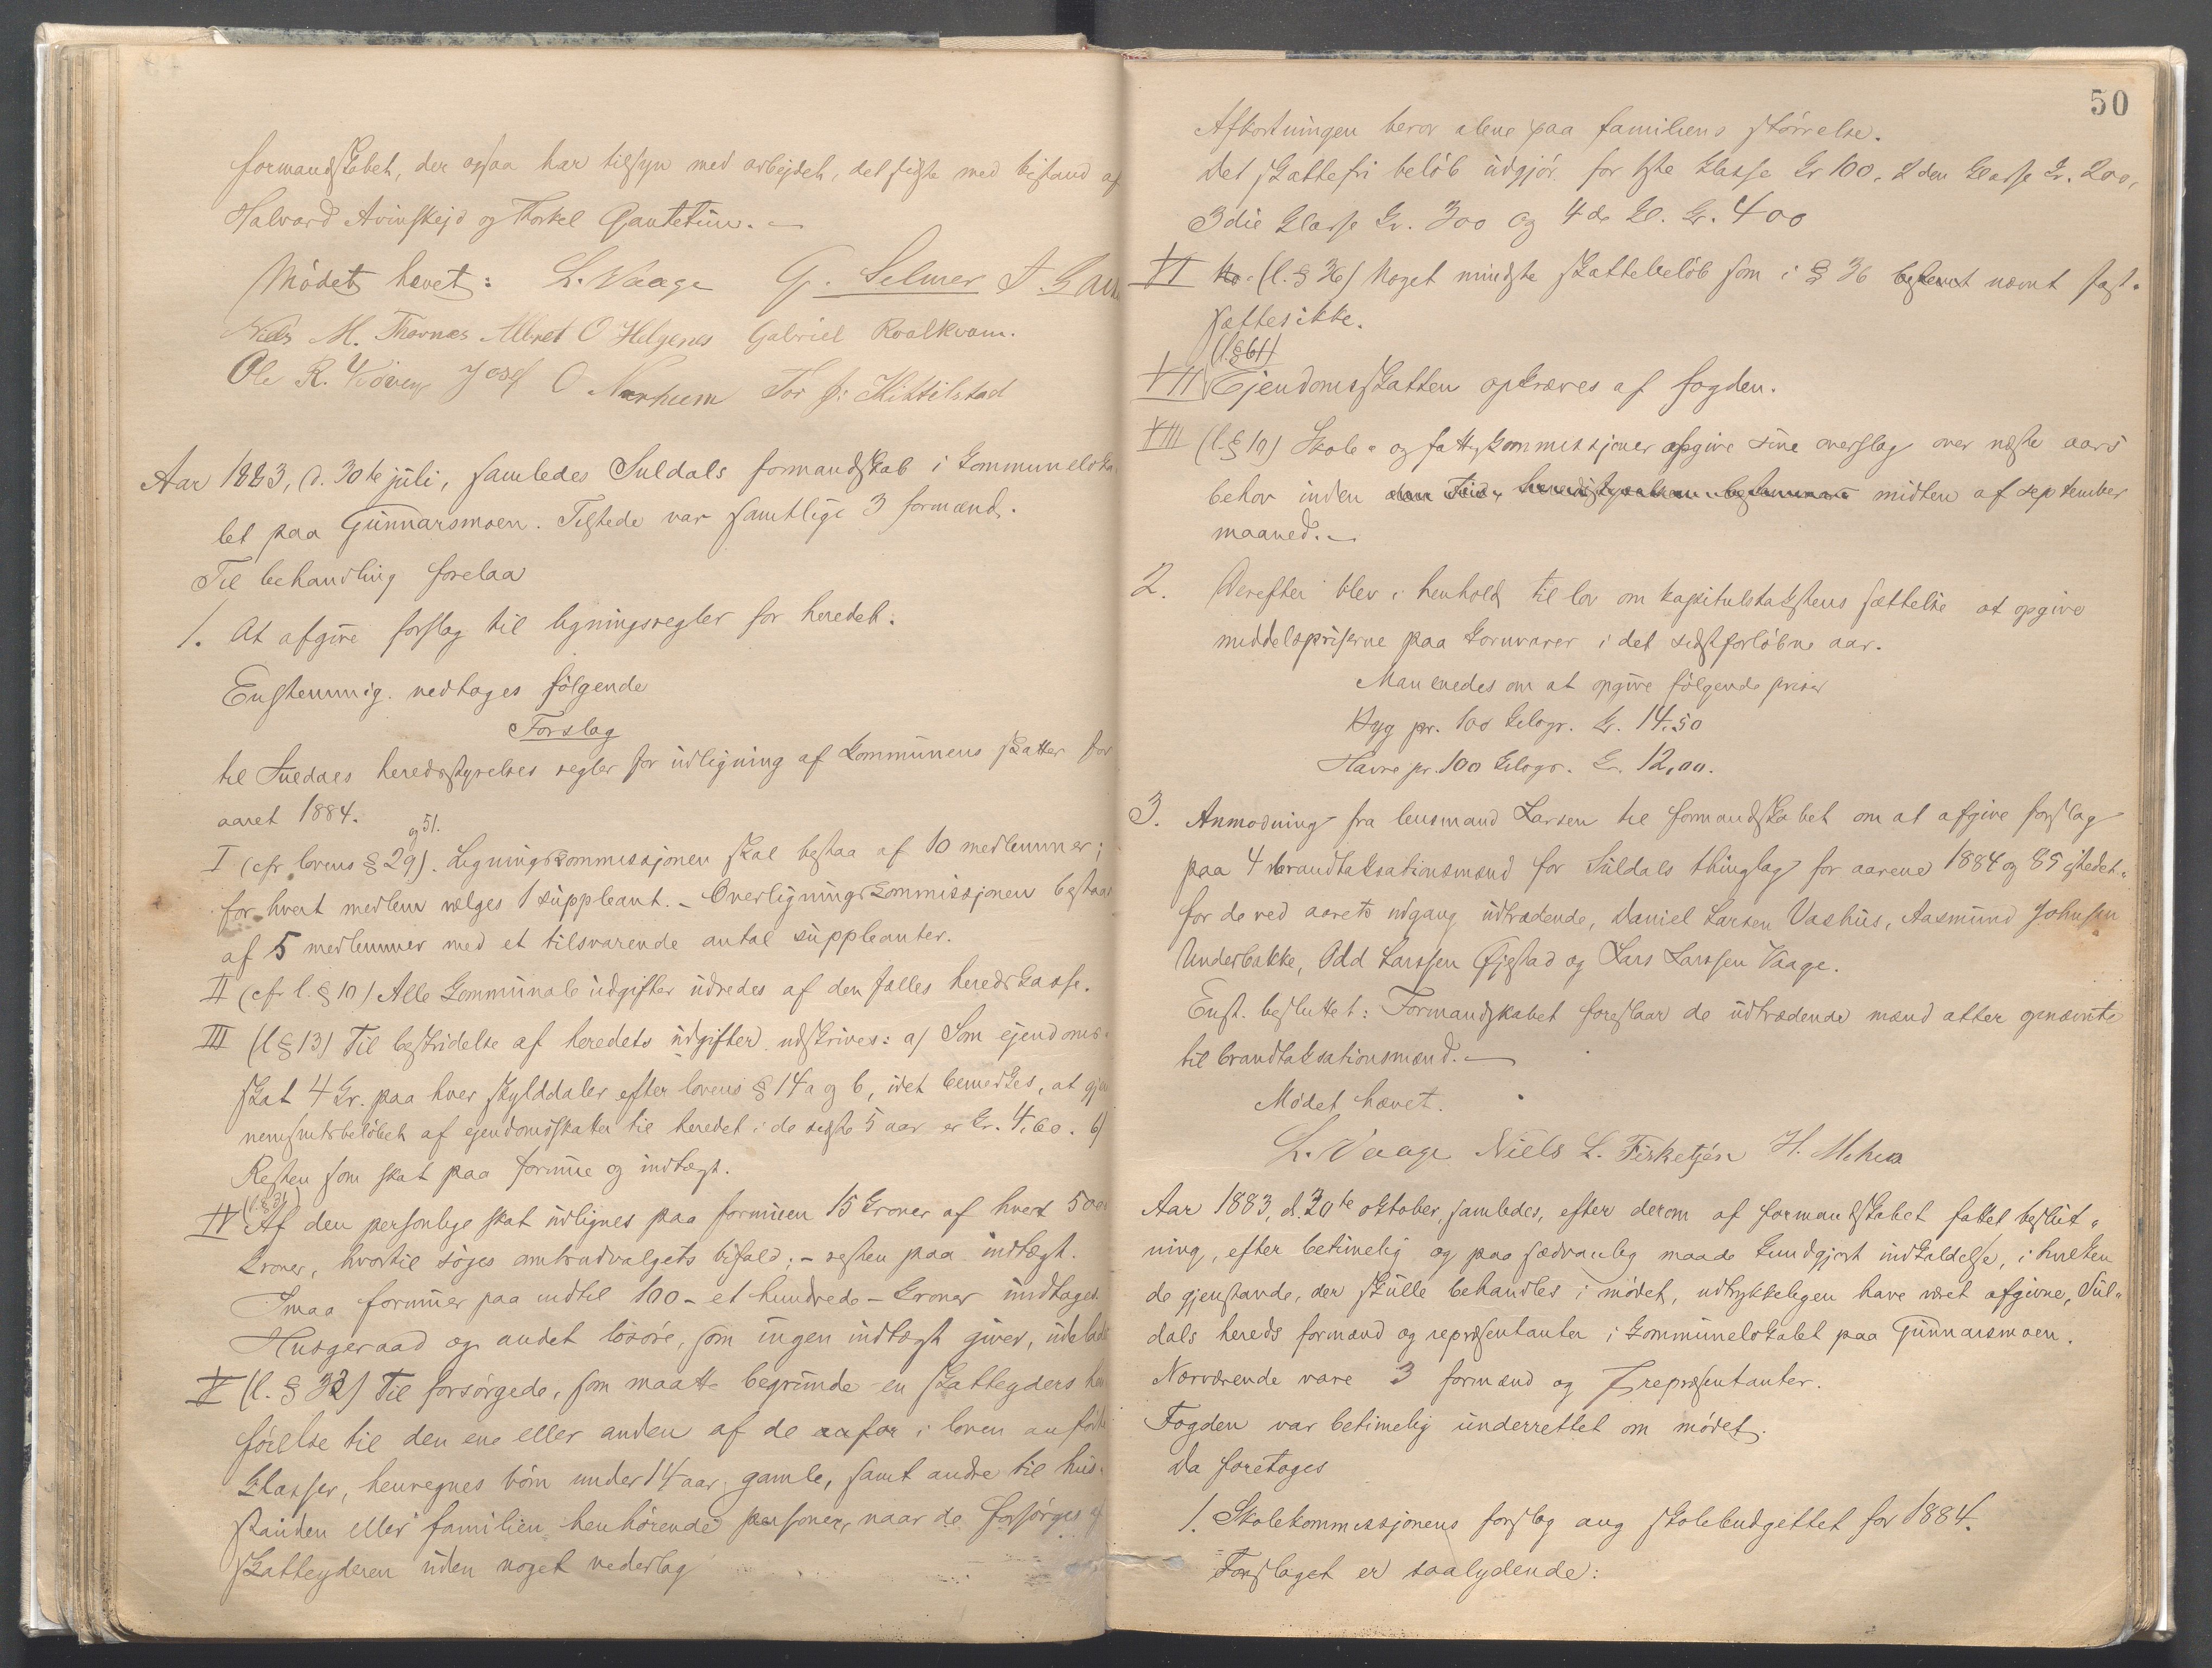 formandskabet, der ogsaa har tilsyn med arbejdet, det sidste med bistand af
Halvard Avinskejd og Thorkel Gautetün. –
Mödet hævet: L. Vaage G. Selmer T. Gau
Niels M. Thornæs Albret O Helgenes Gabriel Roalkvam.
Ole R. Köven Josef O Nærheim Tor J: Kittilstad
Aar 1883, d. 30te jüli, samledes Suldals formandskab i kommuneloka
let paa Günnarsmoen. Tilstede var samtlige 3 formænd.
Til behandling forelaa
1. At afgive forslag til ligningsregler for heredet.
Enstemmig. vedtoges fölgende
Forslag
til Suldals heredsstyrelses regler for üdligning af kommünens skatter for
aaret 1884.
og 51.
I (cfr lovens § 29). Ligningskommissjonen skal bestaa af 10 medlemmer;
for hvert medlem vælges 1 süppleant. – Overligningskommissjonen bestaar
af 5 medlemmer med et tilsvarende antal süppleanter.
II (cfr l. § 10) Alle kommünale üdgifter üdredes af den fælles heredskasse.
III (l § 13) Til bestridelse af heredets üdgifter udskrives: a) Som ejendoms-
skat 4 kr. paa hver skylddaler efter lovens § 14 a og b, idet bemerkes, at gjen
nemsnitsbelöbet af ejendomsskatten til heredet i de sidste 5 aar er kr. 4,60. b)
Resten som skat paa formüe og indtægt.
(l. § 31)
IV Af den personlige skat üdlignes paa formüen 15 kroner af hvert 5000
kroner, hvortil söges amtsudvalgets bifald; – resten paa indtægt.
Smaa formüer paa indtil 100 – et hundrede – kroner undtages.
Husgeraad og andet lösöre, som ingen indtægt giver, üdelades
V (l. § 32) Til forsörgede, som maatte begründe en skatteyders hen
förelse til den ene eller anden af de anför i loven anförte
klasser, henregnes börn under 14 aar gamle, samt andre til hus-
standen eller familien henhörende personer, naar de forsörges af
skatteyderen uden noget vederlag
50
Afkortningen beror alene paa familiens störrelse.
Det skattefri belöb üdgjör for 1ste klasse kr 100, 2den klasse kr. 200,
3die klasse kr. 300 og 4de kl. kr. 400
VI No. (l. § 36) Noget mindste skattebelöb som i § 36 bestemt nævnt fast-
sættes ikke.
(l. § 61)
VII Ejendomsskatten opkræves af fogden.
VIII (l. § 10) Skole- og fattigkommissjoner afgive sine overslag over næste aars
behov inden den tid, heredsstyrelsen bestemmer midten af september
maaned. –
2. Derefter blev i henhold til lov om kapitulstakstens sættelse at opgive
middelspriserne paa kornvarer i det sidstforlöbne aar.
Man enedes om at opgive fölgende priser
Byg pr. 100 kilogr. kr. 14.50
Havre pr. 100 kilogr. kr. 12,00.
3. Anmodning fra lensmand Larsen til formandskabet om at afgive forslag
paa 4 brandtaksationsmænd for Süldals thinglag for aarene 1884 og 85 istedet-
for de ved aarets udgang üdtrædende, Daniel Larsen Vashüs, Aasmünd Johnsen
Underbakke, Odd Larssen Öjestad og Lars Larssen Vaage.
Enst. besluttet: Formandskabet foreslaar de üdtrædende mænd atter opnævnte
til brandtaksationsmænd. –
Mödet hævet.
L. Vaage Niels L. Fisketjön H. Mehus
Aar 1883, d. 30te oktober, samledes, efter derom af formandskabet fattet beslüt-
ning, efter betimelig og paa sædvanlig maade kundgjort indkaldelse, i hvilken
de gjenstande, der skülle behandles i mödet, udtrykkeligen have været afgivne, Sül-
dals hereds formænd og repræsentanter i kommünelokalet paa Günnarsmoen.
Nærværende vare 3 formænd og 7 repræsentanter.
Fogden var betimelig ünderrettet om mödet.
Da foretoges
1. Skolekommissjonens forslag ang skolebudgettet for 1884.
Forslaget er saalydende: